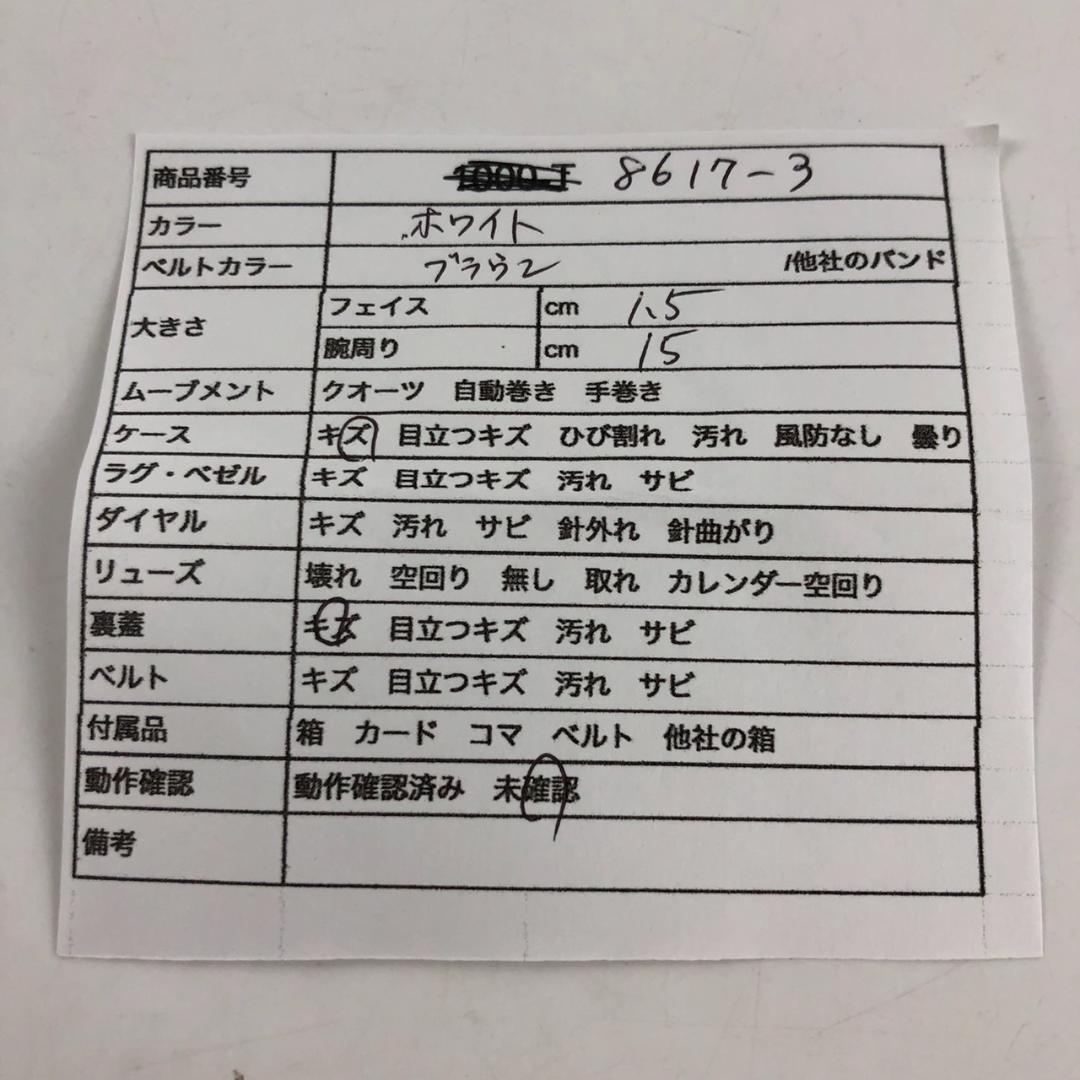 商品番号 1000-J 8617-3
カラー ホワイト
ベルトカラー ブラウン /他社のバンド
大きさ フェイス cm 1.5
腕周り cm 15
ムーブメント クオーツ 自動巻き 手巻き
ケース キズ 目立つキズ ひび割れ 汚れ 風防なし 曇り
ラグ・ベゼル キズ 目立つキズ 汚れ サビ
ダイヤル キズ 汚れ サビ 針外れ 針曲がり
リューズ 壊れ 空回り 無し 取れ カレンダー空回り
裏蓋 キズ 目立つキズ 汚れ サビ
ベルト キズ 目立つキズ 汚れ サビ
付属品 箱 カード コマ ベルト 他社の箱
動作確認 動作確認済み 未確認
備考